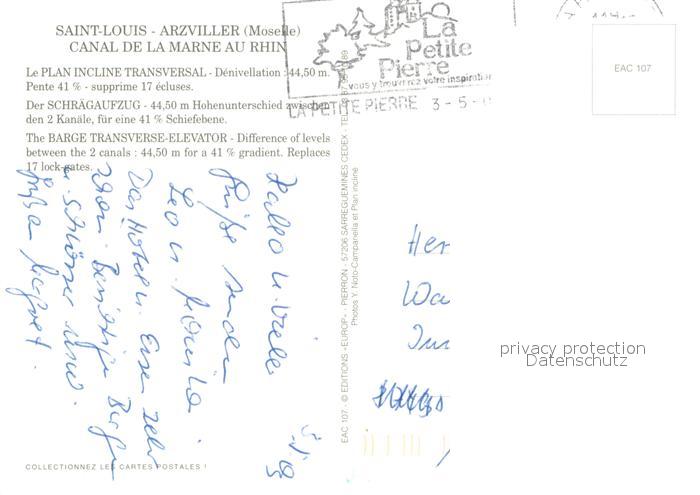 SAINT-LOUIS - ARZVILLER (Moselle)
CANAL DE LA MARNE AU RHIN
Le PLAN INCLINE TRANSVERSAL - Dénivellation : 44,50 m.
Pente 41 % - supprime 17 écluses.
Der SCHRÄGAUFZUG - 44,50 m Hohenunterschied zwischen
den 2 Kanäle, für eine 41 % Schiefebene.
The BARGE TRANSVERSE-ELEVATOR - Difference of levels
between the 2 canals : 44,50 m for a 41 % gradient. Replaces
17 lock-gates.
La
Petite
Pierre
vous y trouverez votre inspiration
LA PETITE PIERRE 3-5-
EAC 107
Hallo u. viele
Grüße senden
Leo u.
Das Hotel u. Essen sehr
Burgen
u. Schlösser usw.
EAC 107 - © EDITIONS «EUROP» - PIERRON - 57206 SARREGUEMINES CEDEX - TEL.
Photos Y. Noto-Campanella et Plan incliné
Her
Wa
privacy protection
Datenschutz
COLLECTIONNEZ LES CARTES POSTALES !